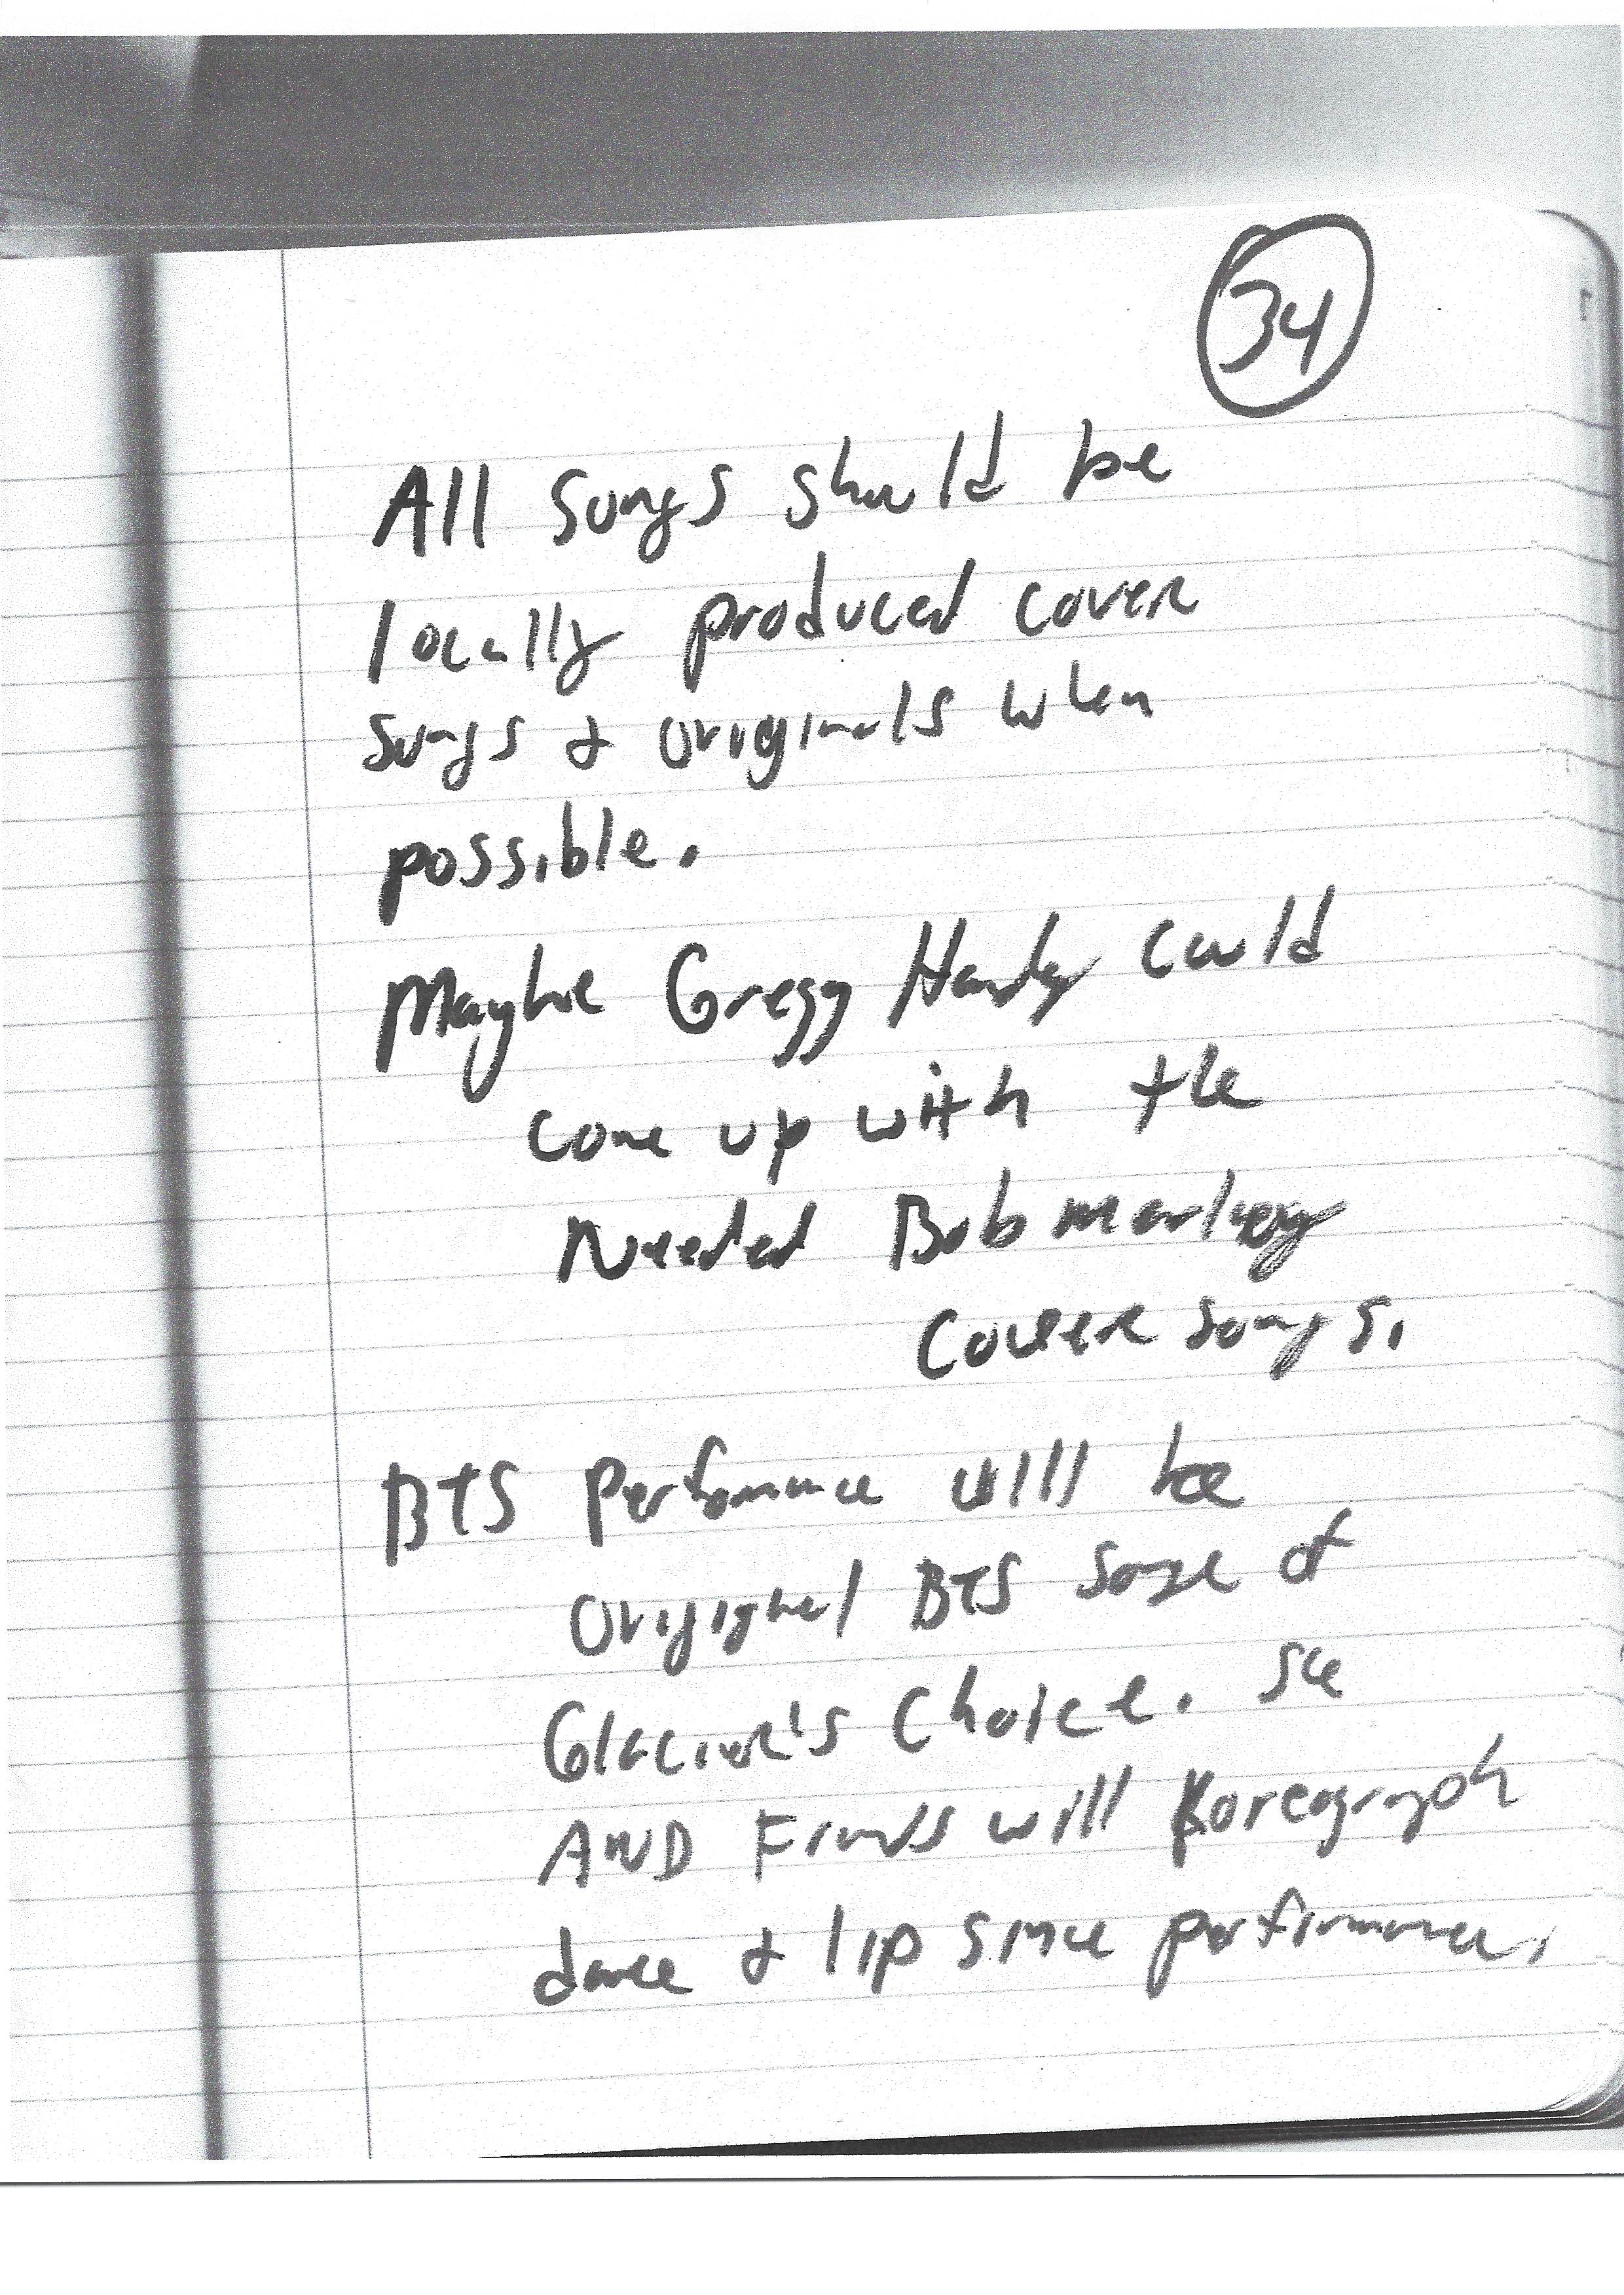 34
All songs should be
locally produced cover
songs & originals when
possible.
Maybe Gregg Hardy could
come up with the
Needed Bob marley
Cover songs.
BTS Performance will be
Original BTS songs of
Glacier's Choice. She
AND Friends will Koreograph
dance & lip since performance.